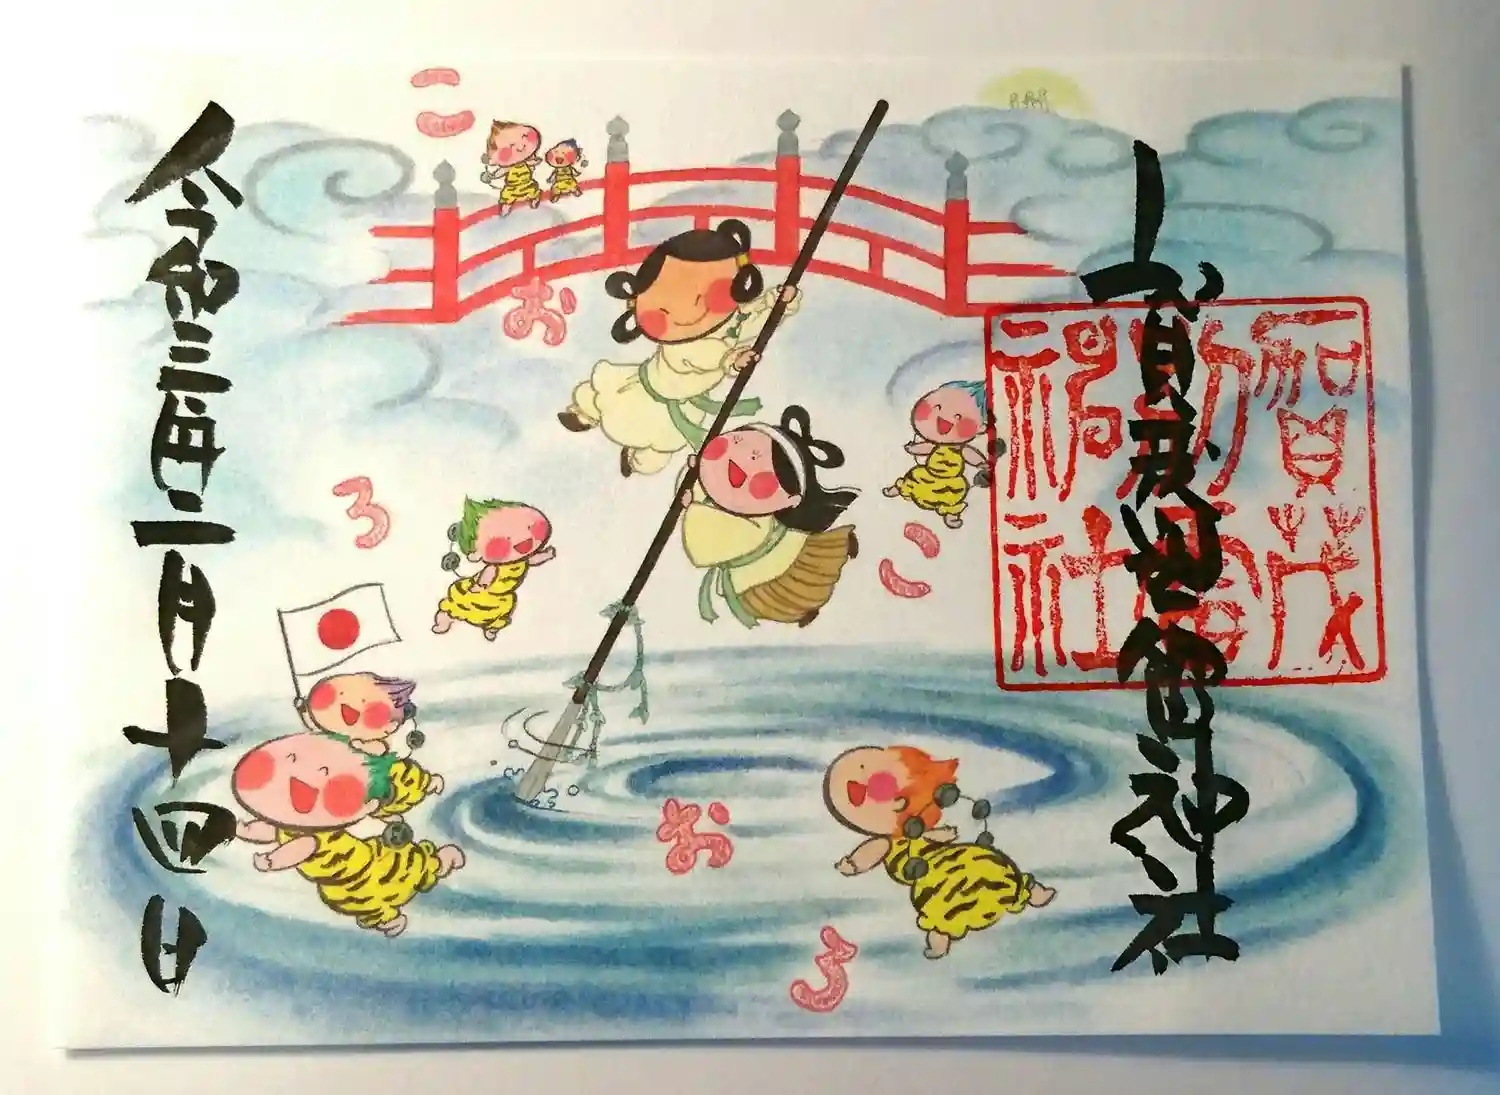 賀茂別雷神社
賀茂
別雷
神社
こ
お
ろ
こ
お
ろ
令和三年二月十四日